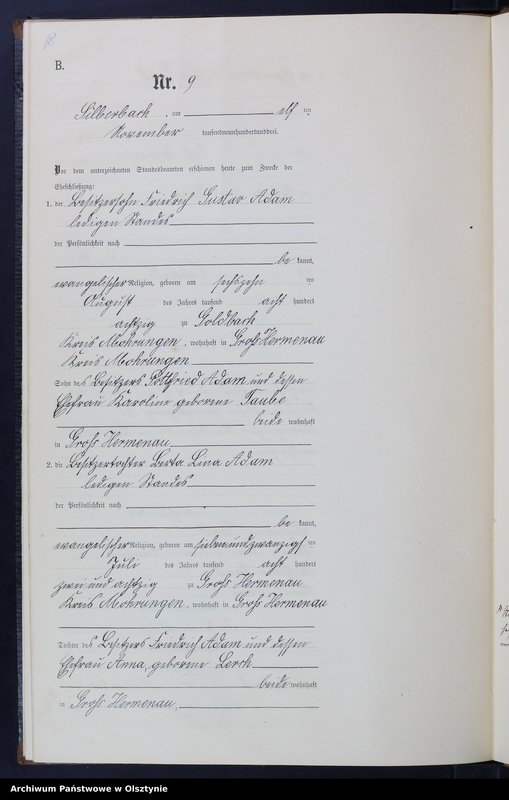 B.
Nr. 9
Silberbach, am elf ten
November tausendneunhundertunddrei.
Vor dem unterzeichneten Standesbeamten erschienen heute zum Zwecke der
Eheschließung:
1. der Besitzersohn Friedrich Gustav Adam
ledigen Standes
der Persönlichkeit nach
be kannt,
evangelischer Religion, geboren am sechszehn ten
August des Jahres tausend acht hundert
achtzig zu Goldbach
Kreis Mohrungen, wohnhaft in Groß Hermenau
Kreis Mohrungen
Sohn des Besitzers Gottfried Adam und dessen
Ehefrau Karoline geborene Taube
beide wohnhaft
in Groß Hermenau
2. die Besitzertochter Berta Lina Adam
ledigen Standes
der Persönlichkeit nach
be kannt,
evangelischer Religion, geboren am siebenundzwanzigsten
Juli des Jahres tausend acht hundert
zwei und achtzig zu Groß Hermenau
Kreis Mohrungen, wohnhaft in Groß Hermenau
Tochter des Besitzers Friedrich Adam und dessen
Ehefrau Anna, geborene Lerch
beide wohnhaft
in Groß Hermenau,
Archiwum Państwowe w Olsztynie